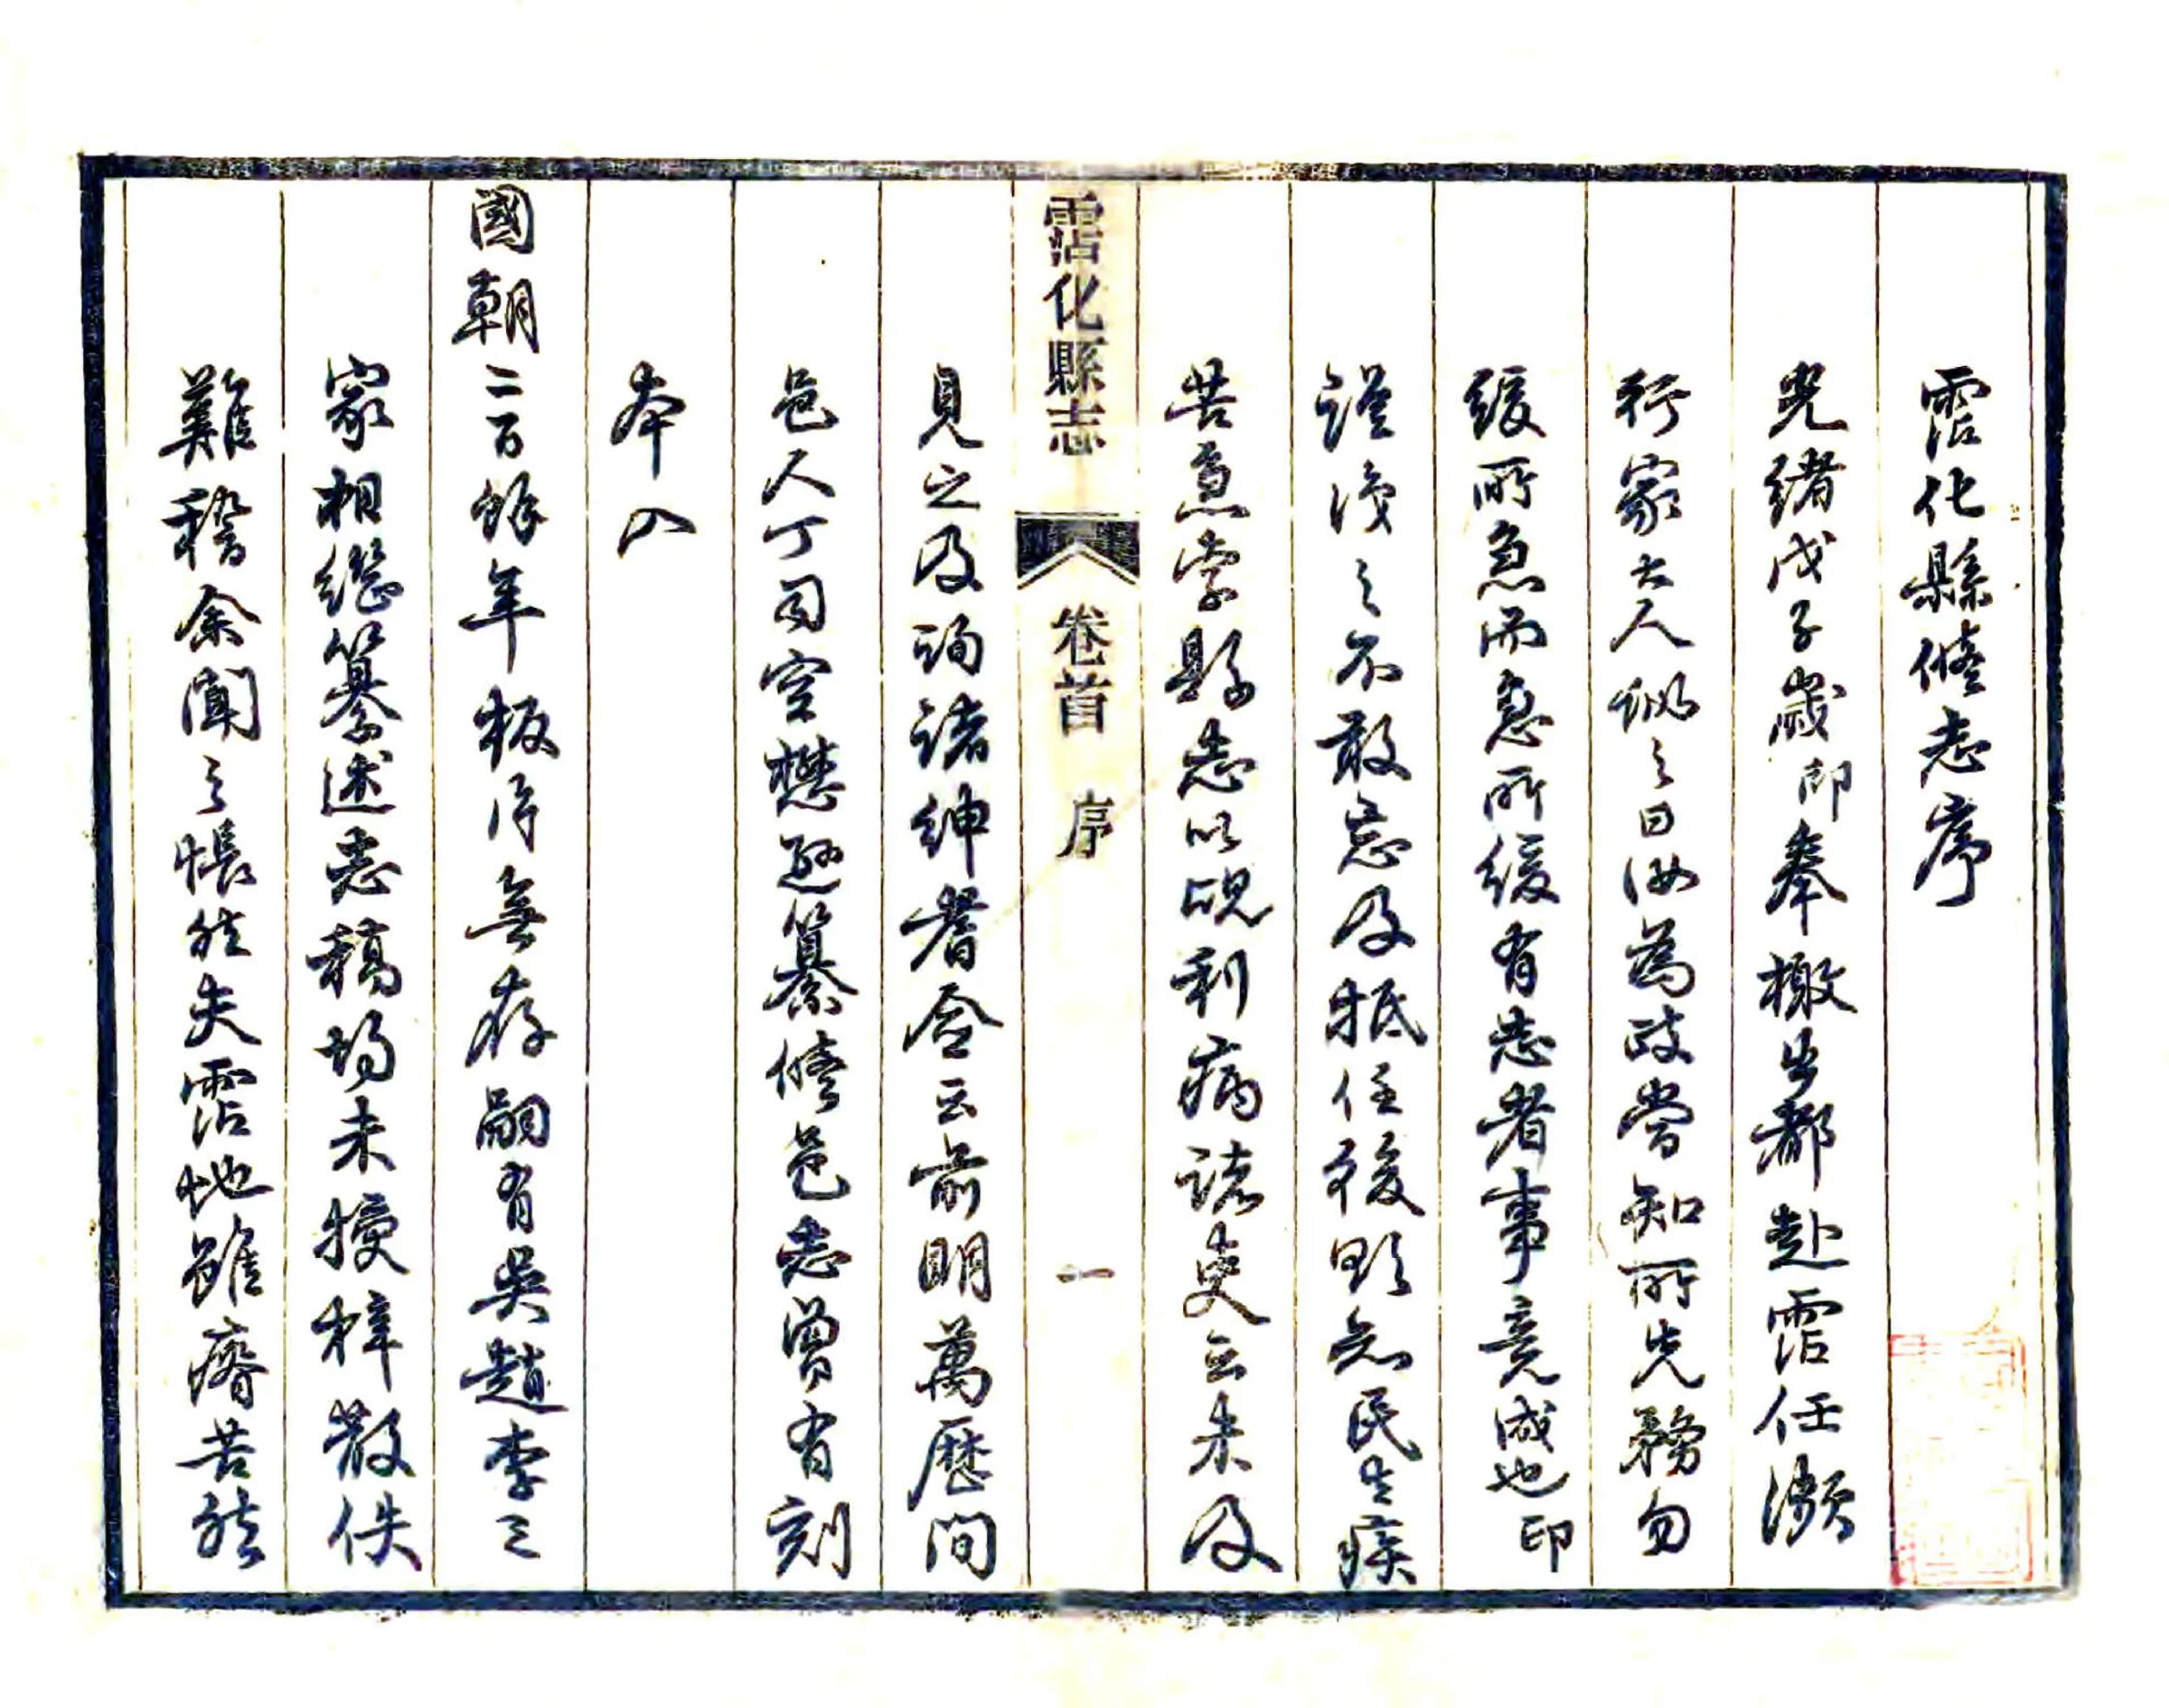 霑化縣脩志序
光緒戊子歲印奉檄出都赴霑任瀕
行家大人訓之曰汝為政當知所先務勿
緩所急而急所緩有志者事竟成也印
謹識之不敢忘及抵任後欲知民生疾
苦意索縣志以覘利病諸吏云未及
見之及詢諸紳耆僉云前明萬歷間
邑人丁司空懋遜纂脩邑志曾有刻
本入
國朝二百餘年板片無存嗣有吳趙李三
家相繼纂述志稿均未授梓散佚
難稽余聞之悵然失霑地雖瘠苦然
霑化縣志 卷首 序 一